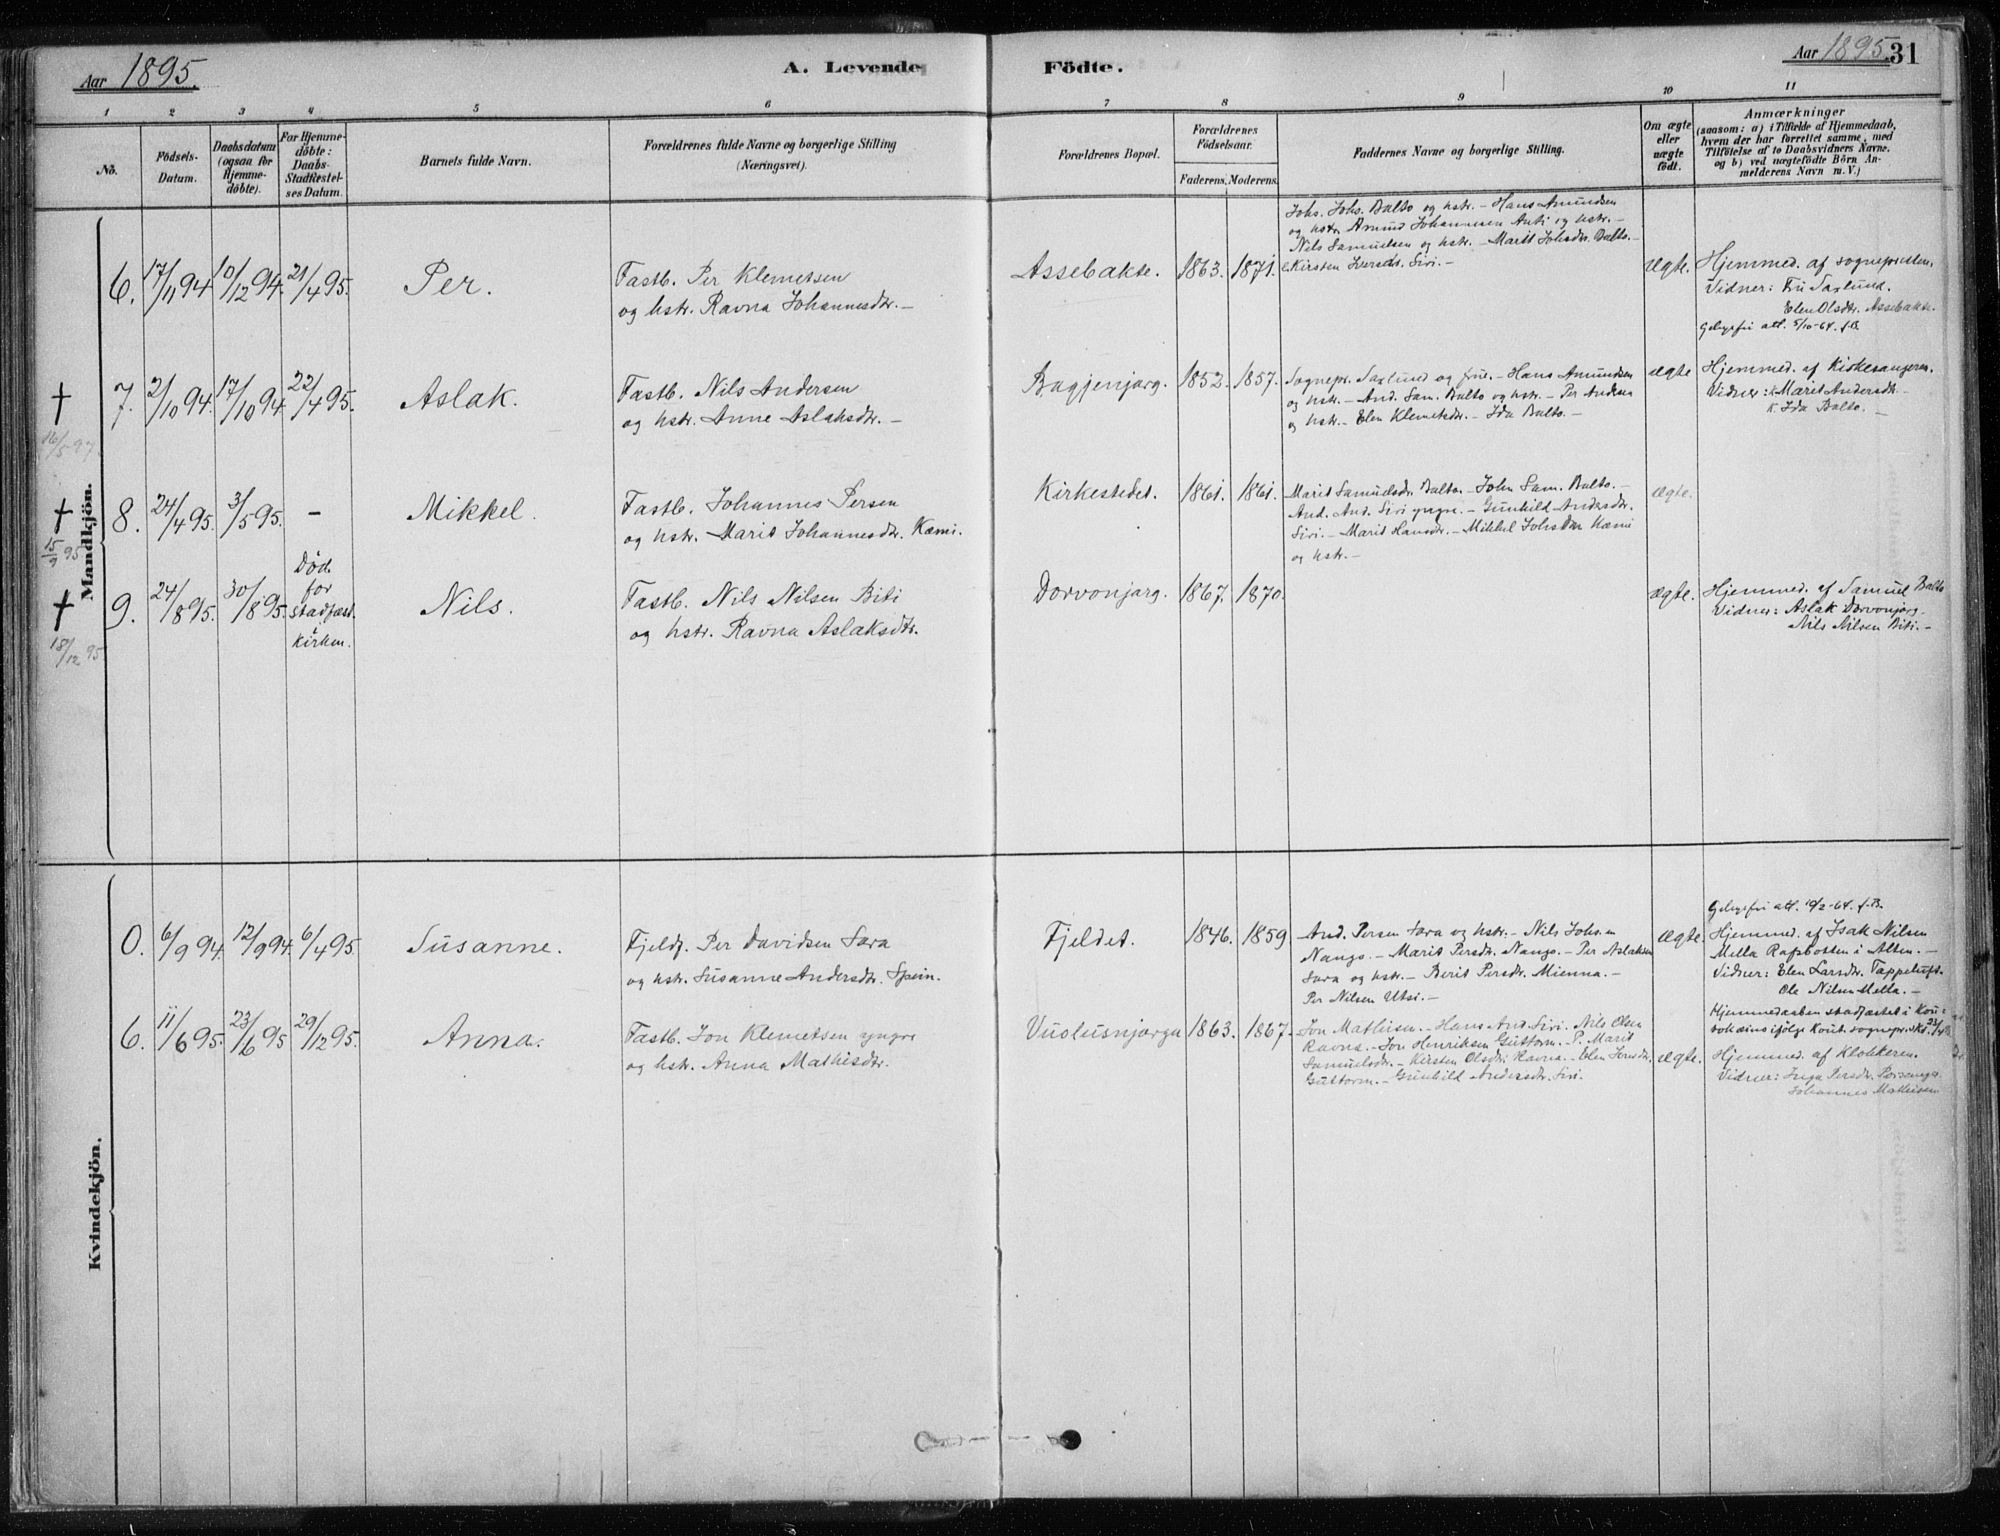 Aar 1895.
A. Levende Födte.
Aar 1895. 31
1 2 3 4 5 6 7 8 9 10 11
No.
Födsels-Datum.
Daabsdatum (ogsaa for Hjemme-döbte).
For Hjemme-döbte: Daabs-Stadfæstel-ses Datum.
Barnets fulde Navn.
Forældrenes fulde Navne og borgerlige Stilling
(Næringsvei).
Forældrenes Bopæl.
Forældrenes Födselsaar.
Faderens. Moderens.
Faddernes Navne og borgerlige Stilling.
Om ægte eller uægte födt.
Anmærkninger
(saasom: a) i Tilfælde af Hjemmedaab,
hvem der har forrettet samme, med
Tilföielse af to Daabsvidners Navne,
og b) ved uægtefödte Börn An-
melderens Navn m. V.)
Mandkjön.
6. 17/11 94 10/12 94. 21/4 95. Per.
Fastb. Per Klemetsen
og hstr. Ravna Johannesdtr. —
Assebakte. 1863. 1871.
Johs. Johs. Balto og hstr. — Hans Amundsen
og hstr. Amund Johannesen Anti og hstr. —
Nils Samuelsen og hstr. — Marit Johsdtr. Balto. —
Kirsten Iversdtr. Siri. —
ægte.
Hjemmed. af sognepresten.
Vidner: Fru Saxlund.
Elen Olsdtr. Assebakte.
att. 5/10-64. f.B.
† 16/5 97.
7. 2/10 94. 17/10 94 22/4 95. Aslak.
Fastb. Nils Andersen
og hstr. Anne Aslaksdtr. —
Bagjenjarg. 1852. 1857.
Sognepr. Saxlund og frue. — Hans Amundsen
og hstr. — And. Sam. Balto og hstr. — Per Andersen
og hstr. — Elen Klemetsdtr. — Ida Balto. —
ægte
Hjemmed. af Kirkesangeren.
Vidner: Marit Andersdtr. —
K. Ida Balto. —
† 15/9 95
8. 24/4 95. 3/5 95. — Mikkel.
Fastb. Johannes Persen
og hstr. Marit Johannesdtr. Kemi.
Kirkestedet. 1861. 1861.
Marit Samuelsdtr. Balto. — John Sam. Balto. —
And. And. Siri yngre. — Gunhild Andersdtr.
Siri. — Marit Hansdtr. — Mikkel Kemi
og hstr. —
ægte.
† 18/12 95
9. 24/8 95. 30/8 95.
Död for Stadfæst. i kirken.
Nils.
Fastb. Nils Nilsen Biti
og hstr. Ravna Aslaksdtr.
Dorvonjarg. 1867. 1870.
ægte.
Hjemmed. af Samuel Balto
Vidner: Aslak Dorvonjarg.
Nils Nilsen Biti. —
Kvindekjön.
0. 6/9 94. 12/9 94. 6/4 95. Susanne.
Fjeldf. Per Davidsen Sara
og hstr. Susanne Andersdtr. Spein.
Fjeldet. 1846. 1859
And. Persen Sara og hstr. — Nils Johs.en
Nango. — Marit Persdtr. Nango. — Per Aslaksen
Sara og hstr. — Berit Persdtr. Mienna. —
Per Nilsen Utsi. —
ægte.
att. 19/2-64. f.B.
Hjemmed. af Isak Nilsen
Mella Rafsbotten i Alten. —
Vidner: Elen Larsdtr. Tappeluft.
Ole Nilsen Mella. —
6. 11/6 95. 23/6 95 29/12 95. Anna.
Fastb. Jon Klemetsen yngre
og hstr. Anna Mathisdtr.
Vuolusnjarga 1863. 1867.
Jon Mathisen. — Hans And. Siri. Nils Olsen
Ravna. — Jon Henriksen Guttorm. — P. Marit
Samuelsdtr. — Kirsten Olsdtr. Ravna. — Elen Jonsdtr.
Guttorm. — Gunhild Andersdtr. Siri.
ægte.
Hjemmedaaben stadfæstet i Kou-
tokeino ifölge Kout. sogneprs
Hjemmed. af Klokkeren.
Vidner: Inga Persdtr. Porsanger.
Johannes Mathisen